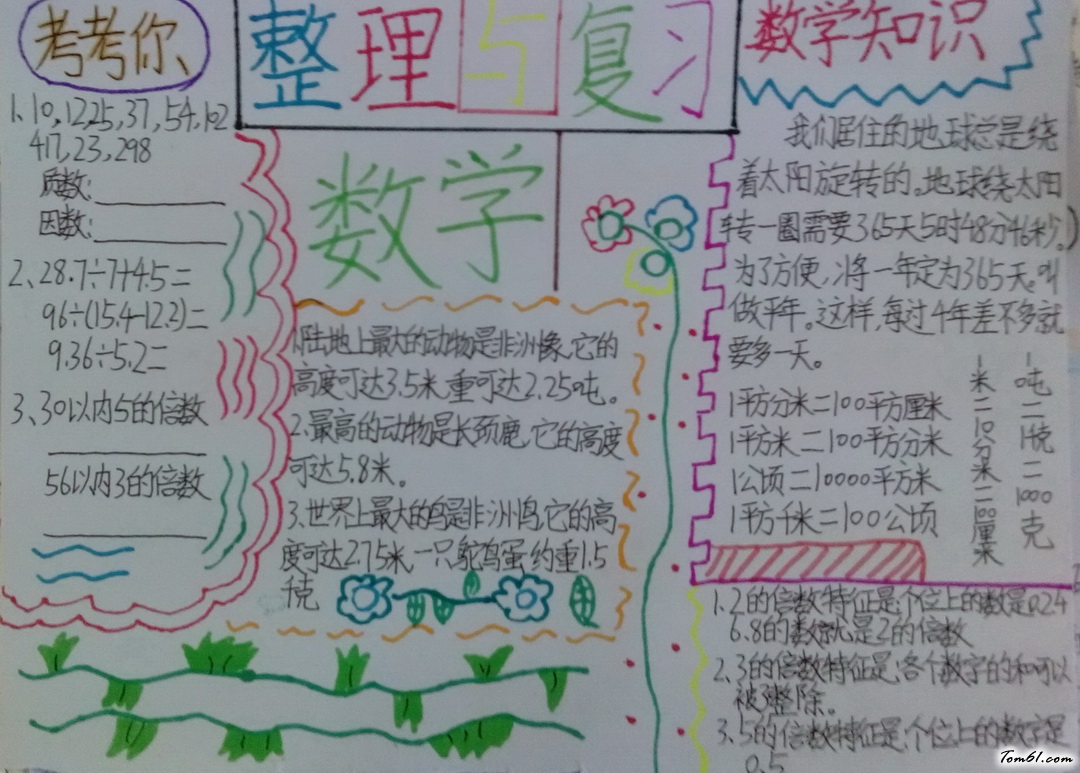 考考你
1.10,12,25,37,54,102
417,23,298
质数:
因数:
2、28.7÷7+4.5=
96÷(15.4-12.2)=
9.36÷5.2=
3、30以内5的倍数
56以内3的倍数
整理与复习
数学
1.陆地上最大的动物是非洲像,它的
高度可达3.5米,重可达2.25吨。
2.最高的动物是长颈鹿,它的高度
可达5.8米。
3.世界上最大的鸟是非洲鸟,它的高
度可达2.75米,一只鸵鸟蛋约重1.5
千克
数学知识
我们居住的地球总是绕
着太阳旋转的。地球绕太阳
转一圈需要365天5时48分46秒。
为了方便,将一年定为365天。叫
做平年。这样,每过4年差不多就
要多一天。
1平方分米=100平方厘米
1平方米=100平方分米
1公顷=10000平方米
1平方千米=100公顷
1米=10分米=100厘米
1吨=1千克=1000克
1.2的倍数特征是:个位上的数是0.2.4
6.8的数就是2的倍数
2.3的倍数特征是:各个数字的和可以
被3整除。
3.5的倍数特征是:个位上的数字是
0.5
Tom61.com